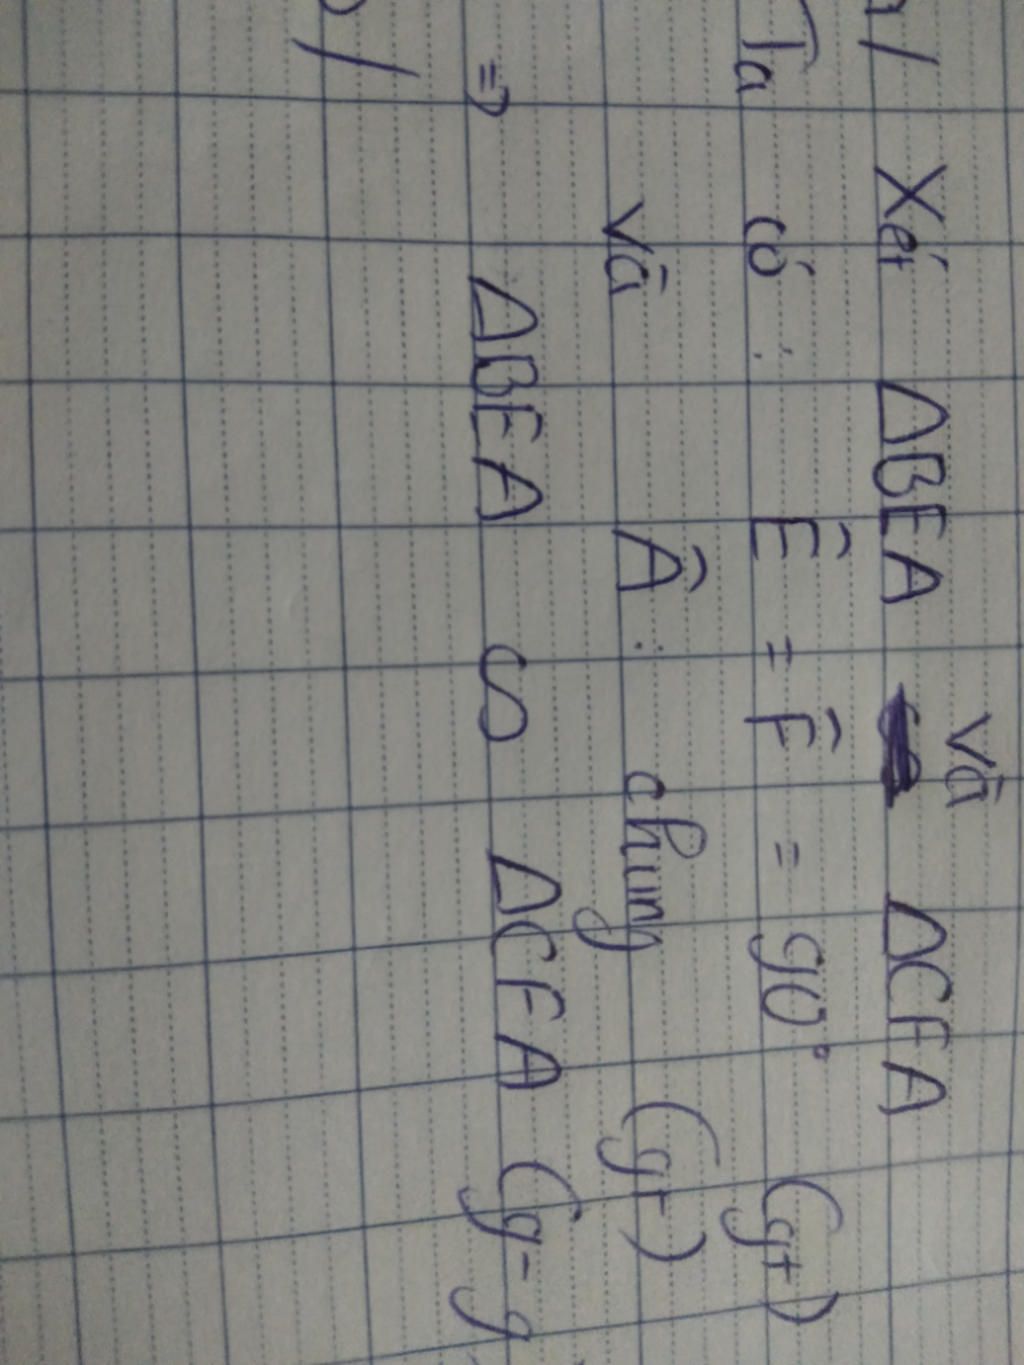 a/ Xét ΔBEA và ΔCFA
Ta có: Ê = F̂ = 90° (gt)
và Â: chung (gt)
⇒ ΔBEA ∽ ΔCFA (g-g